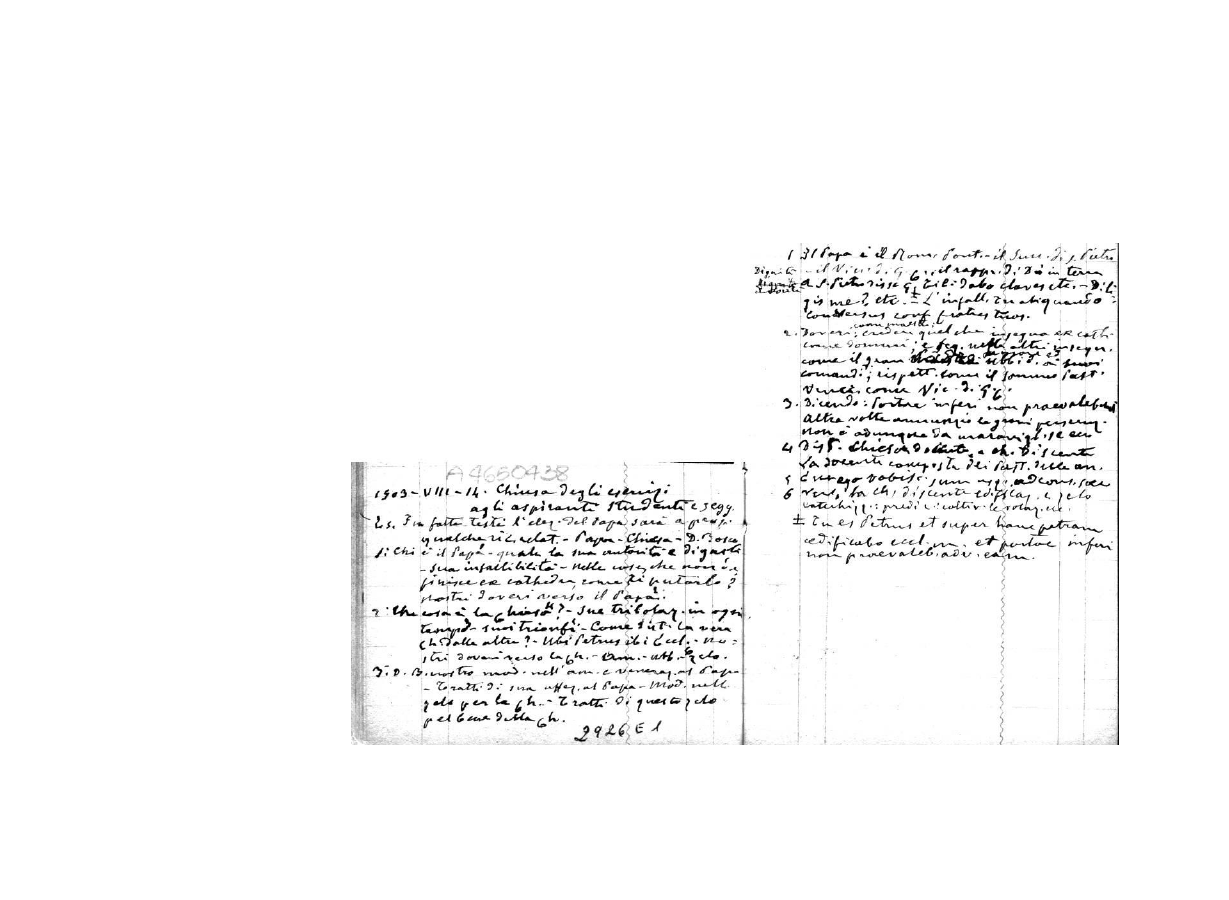 A4650438
1903-VIII-14. Chiusa degli esercizi
agli aspiranti studenti e segg.
Es. In fatto testè l'elez. del Papa sarà a prop.
qualche rifl. relat. - Papa - Chiesa - D. Bosco
1. Chi è il Papa - quale la sua autorità e dignità
- sua infallibilità - nelle cose, che non de
finisce ex cathedra, come
nostri doveri verso il Papa?
2. Che cosa è la Chiesa? - Sue tribolaz. in ogni
tempo - suoi trionfi - Come dist. la vera
Ch. dalle altre? - Ubi Petrus ibi Eccl. - No=
stri doveri verso la Ch. - Am. - ubb. - zelo.
3. D. B. nostro mod. nell'am. e veneraz. al Papa
- Tratti di sua affez. al Papa - Mod. nello
zelo per la Ch. - Tratti di questo zelo
pel bene della Ch.
2926 E 1
1 Il Papa è il Rom. Pont. - il Succ. di S. Pietro
Dignità - il Vic. di G. C., il rappr. di Dio in terra
A S. Pietro disse G. C.: Tibi dabo claves etc. - Dili
gis me?, etc. ± L'infall. Tu aliquando
conversus conf. fratres tuos.
2. Doveri: credere quel che insegna ex cath.
come dommi; e seg. nelle altre insegn.
come il gran ubbid. ai suoi
comandi; rispett. come il sommo Past.
come Vic. di G. C.
3. Dicendo: Portae inferi non praevalebunt
altre volte annunziò le gravi persecuz.
non è adunque da maravigl. se ecc
4 Dist. Chiesa docente e ch. discente
La docente composta dei Past. delle an.
5 Et ego vobiscum sum usq. ad cons. saec
6 Vers. la ch. discente
catechizz.: predic: coltiv. le vocaz. ecc.
± Tu es Petrus et super hanc petram
aedificabo eccl. m. et portae inferi
non praevaleb. adv. eam.